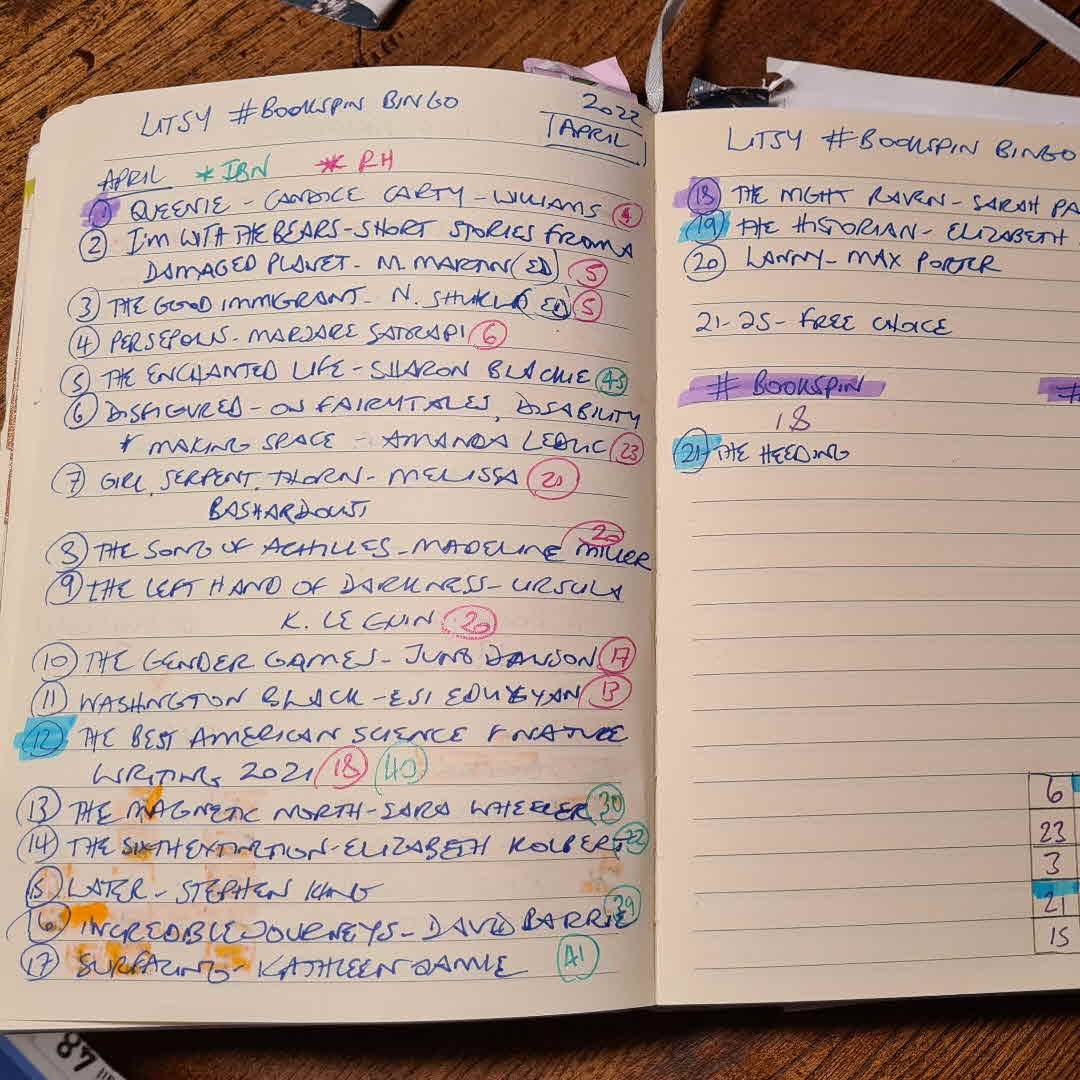 LITSY #BOOKSPIN BINGO
2022
APRIL
APRIL * IBN * RH
1 QUEENIE - CANDICE CARTY - WILLIAMS 4
2 I'M WITH THE BEARS - SHORT STORIES FROM A
DAMAGED PLANET - M. MARTIN (ED) 5
3 THE GOOD IMMIGRANT - N. SHUKLA (ED) 5
4 PERSEPOLIS - MARJARE SATRAPI 6
5 THE ENCHANTED LIFE - SHARON BLACKIE 45
6 DISFIGURED - ON FAIRYTALES, DISABILITY
+ MAKING SPACE - AMANDA LEDUC 23
7 GIRL, SERPENT, THORN - MELISSA 20
BASHARDOUST
8 THE SONG OF ACHILLES - MADELINE MILLER 20
9 THE LEFT HAND OF DARKNESS - URSULA
K. LE GUIN 20
10 THE GENDER GAMES - JUNO DAWSON 17
11 WASHINGTON BLACK - ESI EDUGYAN 13
12 THE BEST AMERICAN SCIENCE + NATURE
WRITING 2021 18 40
13 THE MAGNETIC NORTH - SARA WHEELER 30
14 THE SIXTH EXTINCTION - ELIZABETH KOLBERT
15 LATER - STEPHEN KING
16 INCREDIBLE JOURNEYS - DAVID BARRIE 39
17 SURFACING - KATHLEEN JAMIE 41
LITSY #BOOKSPIN BINGO
18 THE NIGHT RAVEN - SARAH PA
19 THE HISTORIAN - ELIZABETH
20 LANNY - MAX PORTER
21-25 - FREE CHOICE
# BOOKSPIN #
18
21 THE HEEDING
6
23
3
21
15
87